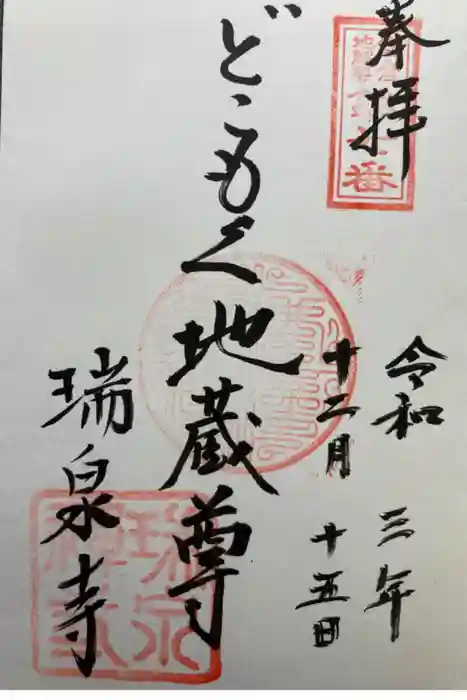 奉拝
令和三年
十二月
十五日
どこもく地蔵尊
瑞泉寺
瑞泉
禅寺